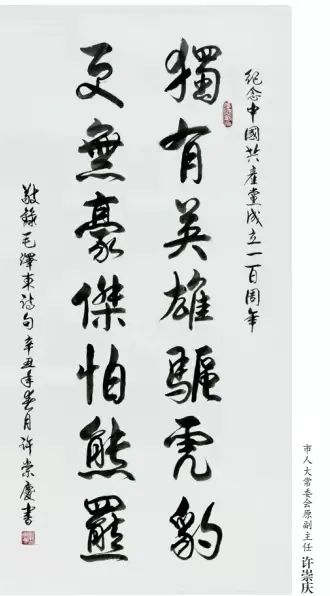 紀念中國共產黨成立一百周年
獨有英雄驅虎豹
更無豪傑怕熊羆
敬錄毛澤東詩句辛丑年春月许崇慶書
市人大常委会原副主任 许崇庆